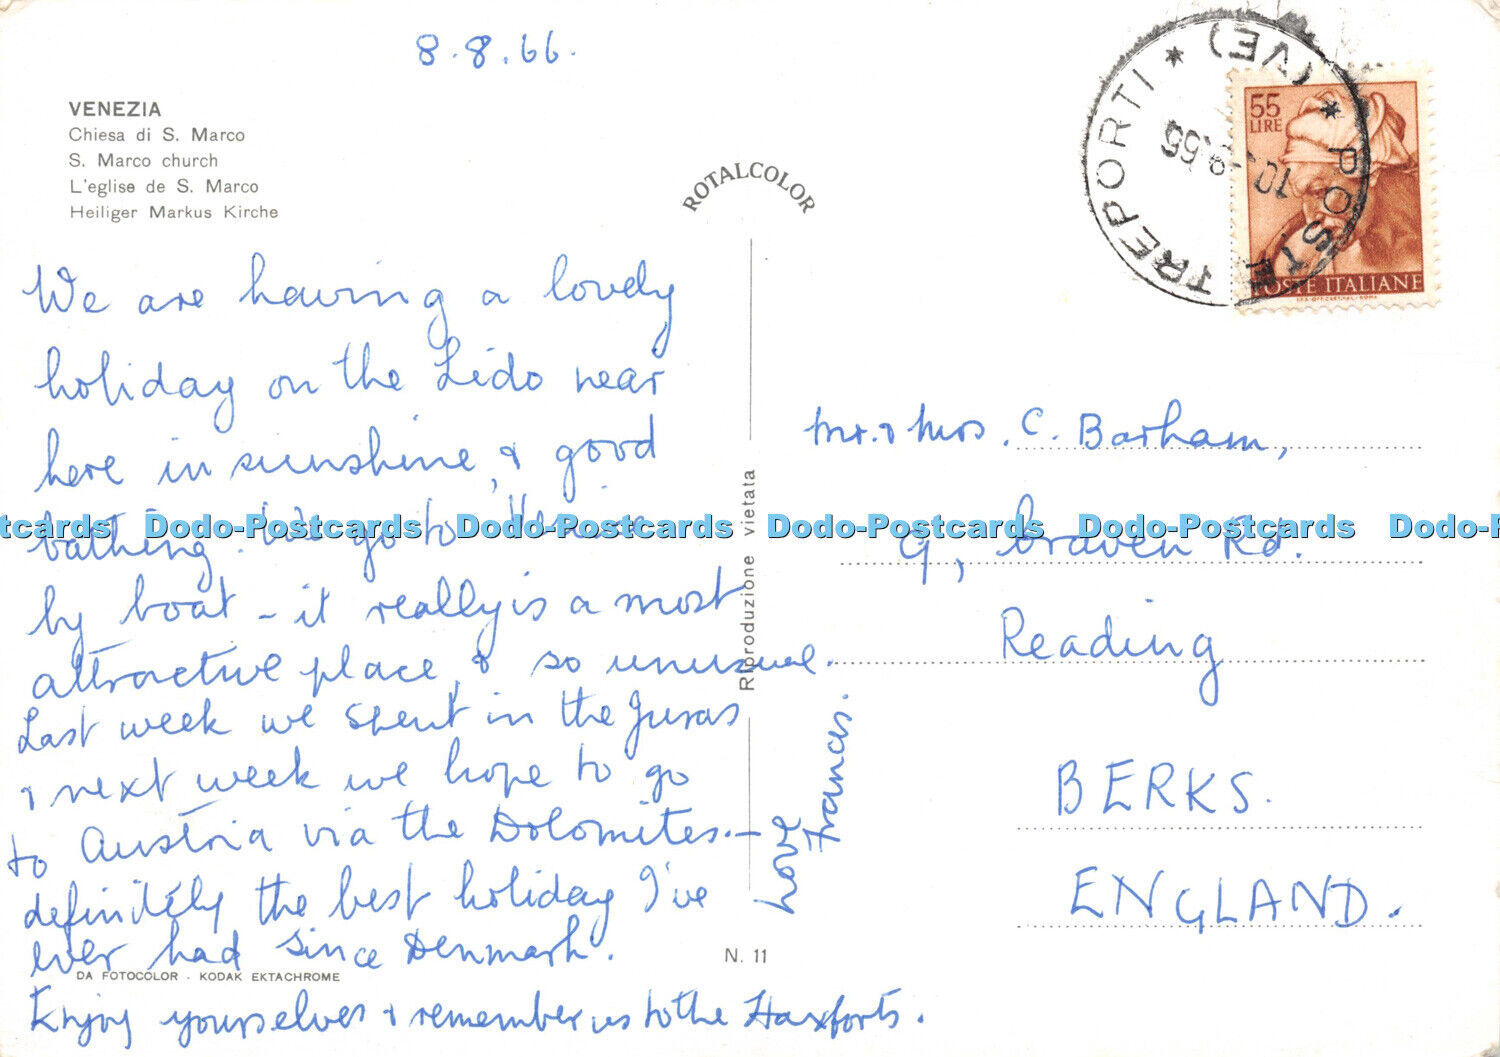 8.8.66.
VENEZIA
Chiesa di S. Marco
S. Marco church
L'eglise de S. Marco
Heiliger Markus Kirche
ROTALCOLOR
We are having a lovely
holiday on the Lido near
here in sunshine, & good
bathing. We go to Venice
by boat – it really is a most
attractive place, & so unusual.
Last week we spent in the Juras
& next week we hope to go
to Austria via the Dolomites. –
definitely the best holiday I've
ever had since Denmark.
Enjoy yourselves & remember us to the Haxforts.
Love
Frances.
DA FOTOCOLOR - KODAK EKTACHROME
N. 11
Riproduzione vietata
TREPORTI * (VE) * POSTE
10.8.66
55
LIRE
POSTE ITALIANE
Mr. & Mrs. C. Barham,
9, Craven Rd.
Reading
BERKS.
ENGLAND.
Dodo-Postcards Dodo-Postcards Dodo-Postcards Dodo-Postcards